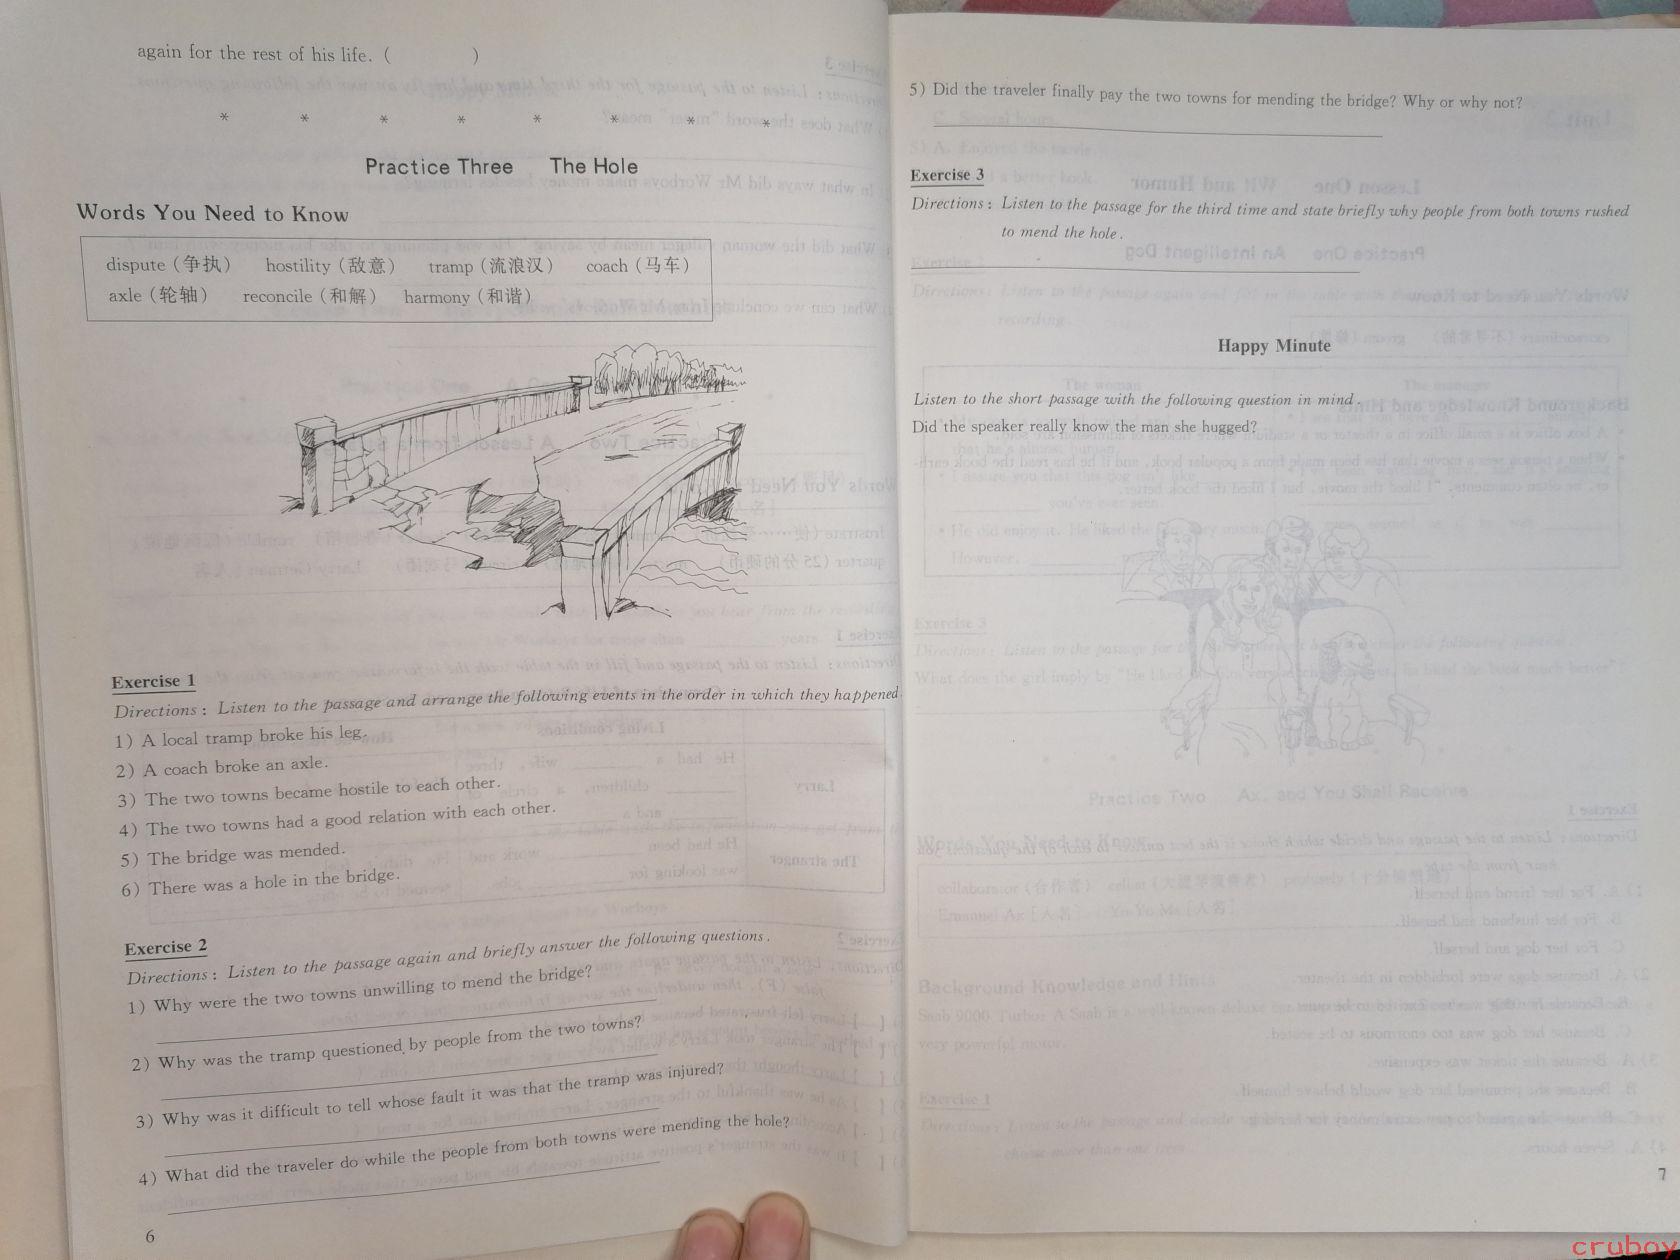 again for the rest of his life. (          )
* * * * * * * *
Practice Three    The Hole
Words You Need to Know
dispute (争执)    hostility (敌意)    tramp (流浪汉)    coach (马车)
axle (轮轴)    reconcile (和解)    harmony (和谐)
Exercise 1
Directions: Listen to the passage and arrange the following events in the order in which they happened.
1) A local tramp broke his leg.
2) A coach broke an axle.
3) The two towns became hostile to each other.
4) The two towns had a good relation with each other.
5) The bridge was mended.
6) There was a hole in the bridge.
Exercise 2
Directions: Listen to the passage again and briefly answer the following questions.
1) Why were the two towns unwilling to mend the bridge?
2) Why was the tramp questioned by people from the two towns?
3) Why was it difficult to tell whose fault it was that the tramp was injured?
4) What did the traveler do while the people from both towns were mending the hole?
6
5) Did the traveler finally pay the two towns for mending the bridge? Why or why not?
Exercise 3
Directions: Listen to the passage for the third time and state briefly why people from both towns rushed
to mend the hole.
Happy Minute
Listen to the short passage with the following question in mind.
Did the speaker really know the man she hugged?
7
cruboy